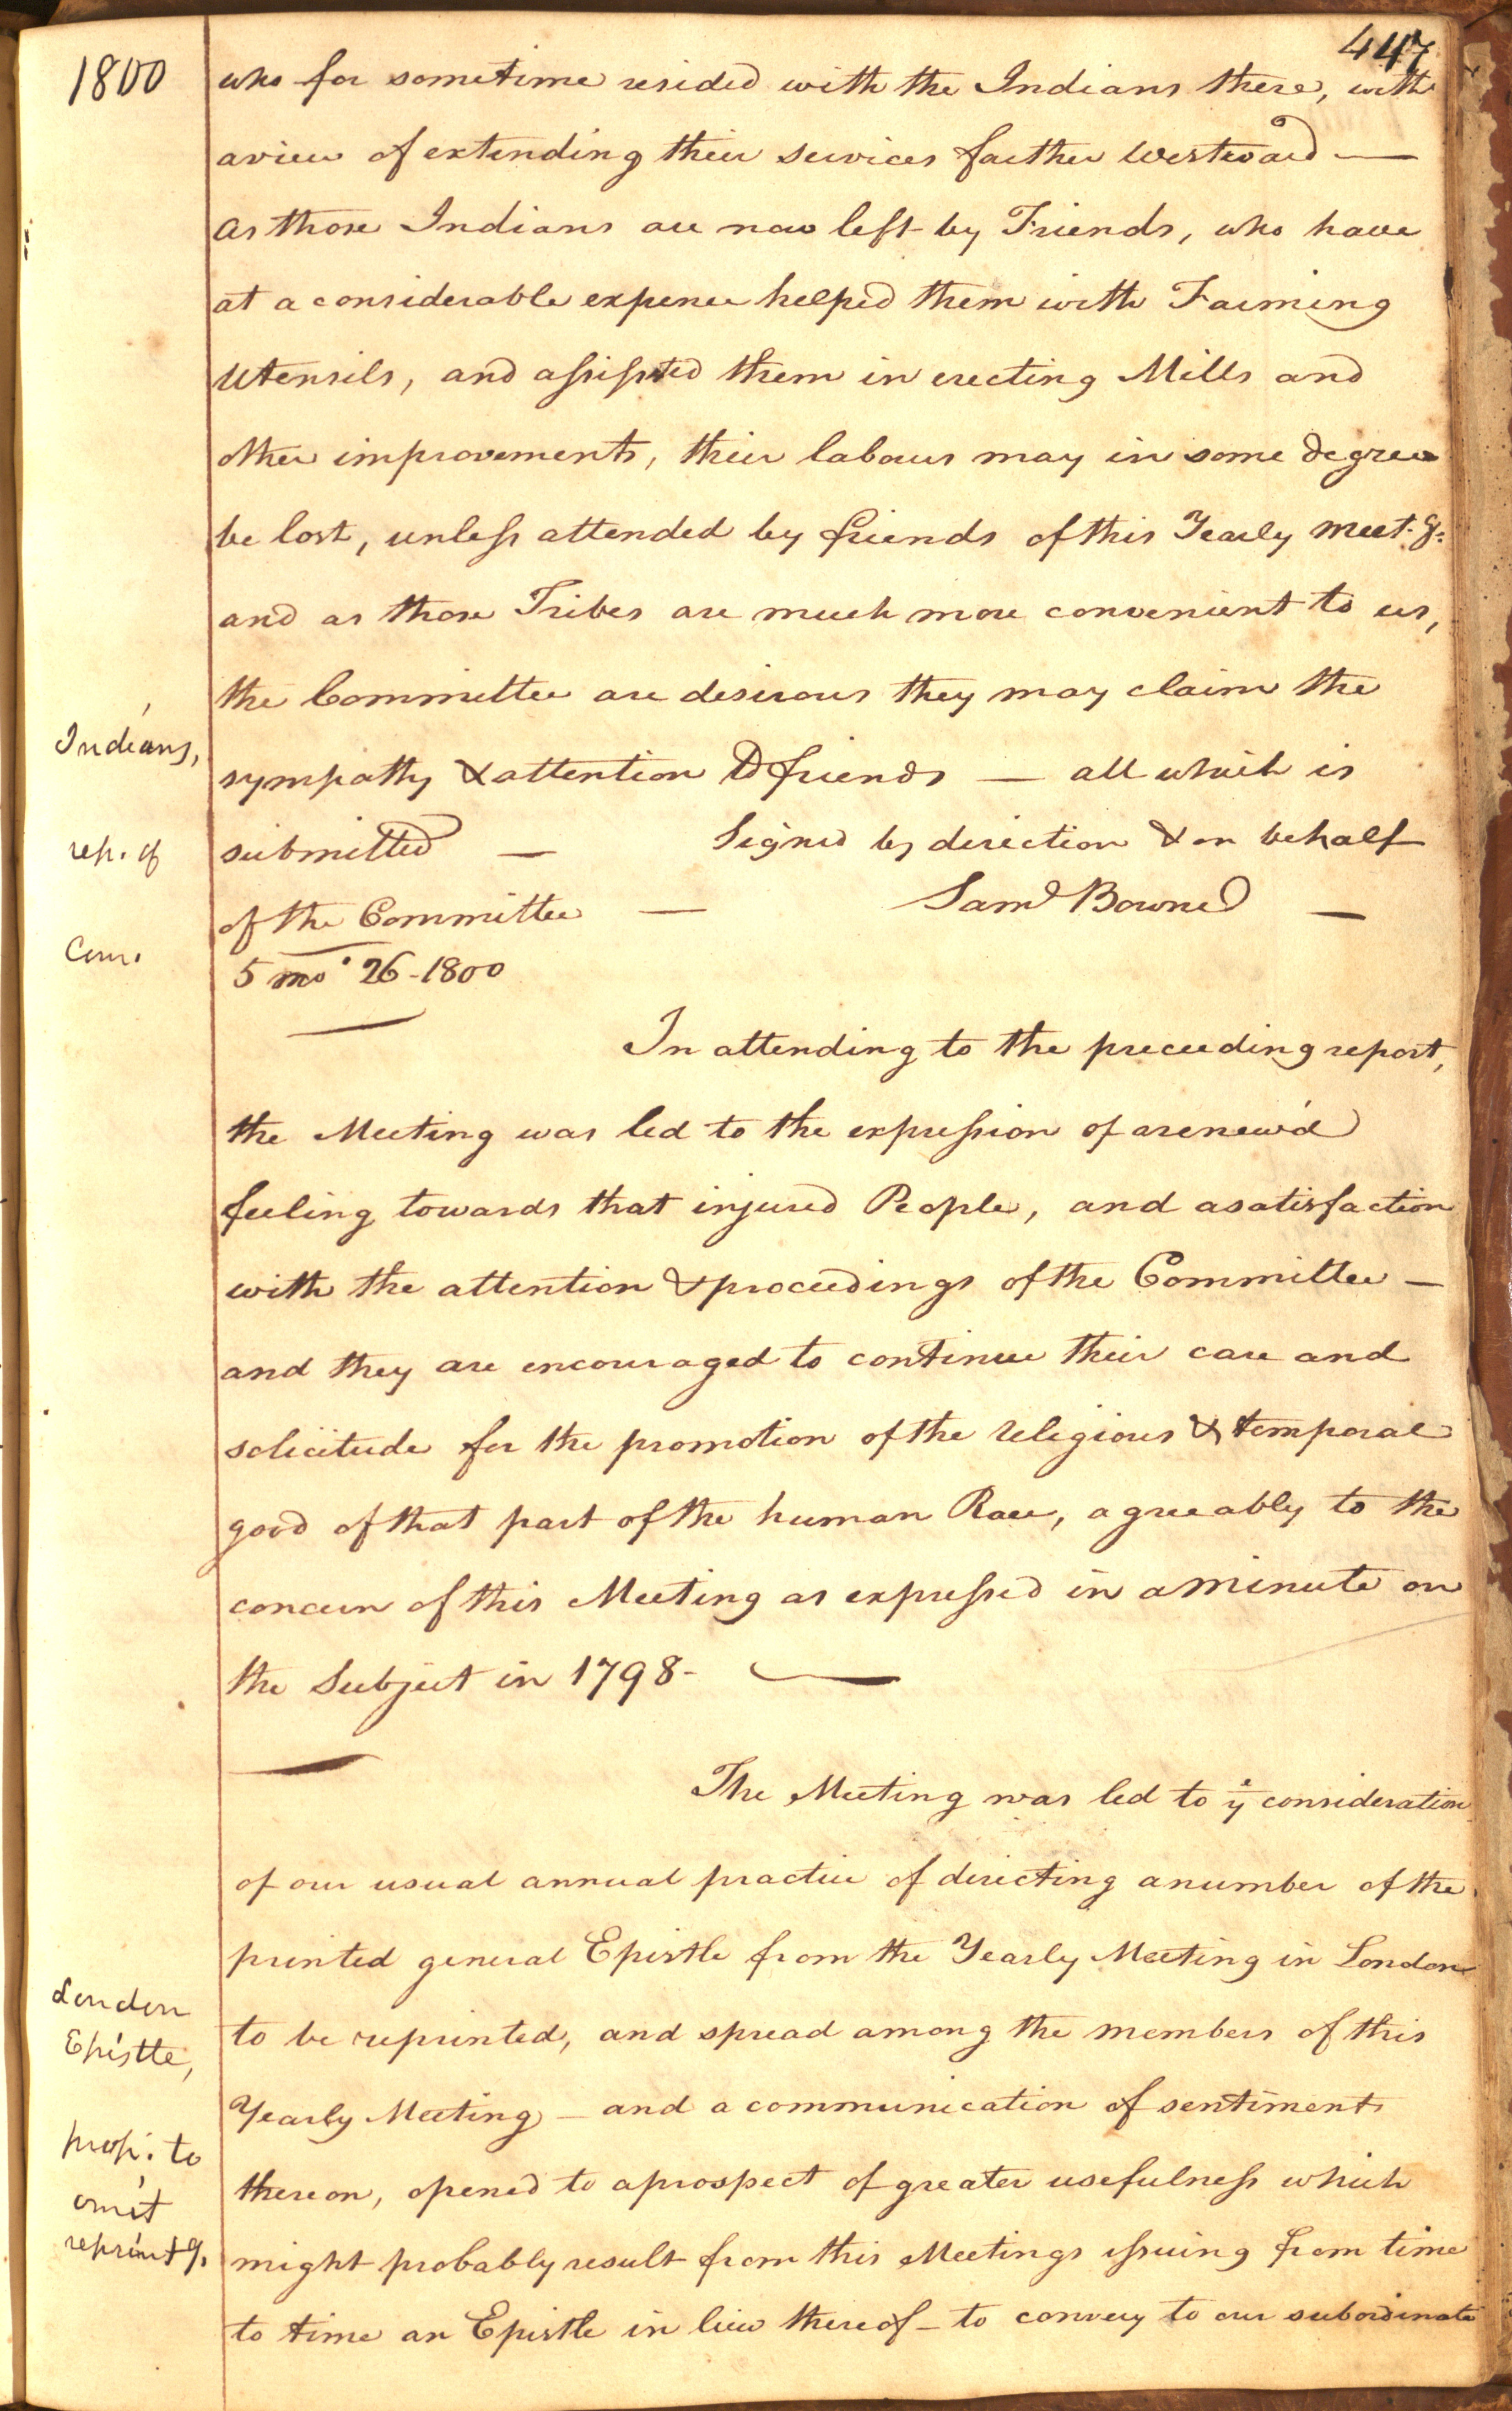 447
1800
who for sometime resided with the Indians there, with
aview of extending their services farther Westward —
as those Indians are now left by Friends, who have
at a considerable expence helped them with Farming
Utensils, and assissted them in erecting Mills and
other improvements, their labour may in some degree
be lost, unless attended by friends of this Yearly Meet.g:
and as those Tribes are much more convenient to us,
the Committee are desirous they may claim the
Indians,
sympathy & attention of friends — all which is
rep. of
submitted — Signed by direction & on behalf
of the Committee — Saml Bowne —
Com.
5 mo. 26-1800
In attending to the preceeding report,
the Meeting was led to the expression of arenew'd
feeling towards that injured People, and asatisfaction
with the attention & proceedings of the Committee —
and they are encouraged to continue their care and
solicitude for the promotion of the religious & temporal
good of that part of the human Race, agreeably to the
concern of this Meeting as expressed in aminute on
the Subject in 1798-
The Meeting was led to ye consideration
of our usual annual practice of directing anumber of the
printed general Epistle from the Yearly Meeting in London
London
to be reprinted, and spread among the members of this
Epistle,
Yearly Meeting — and a communication of sentiments
prop. to
thereon, opened to aprospect of greater usefulness which
omit
reprint g.
might probably result from this Meetings issuing from time
to time an Epistle in lieu thereof — to convey to our subordinate